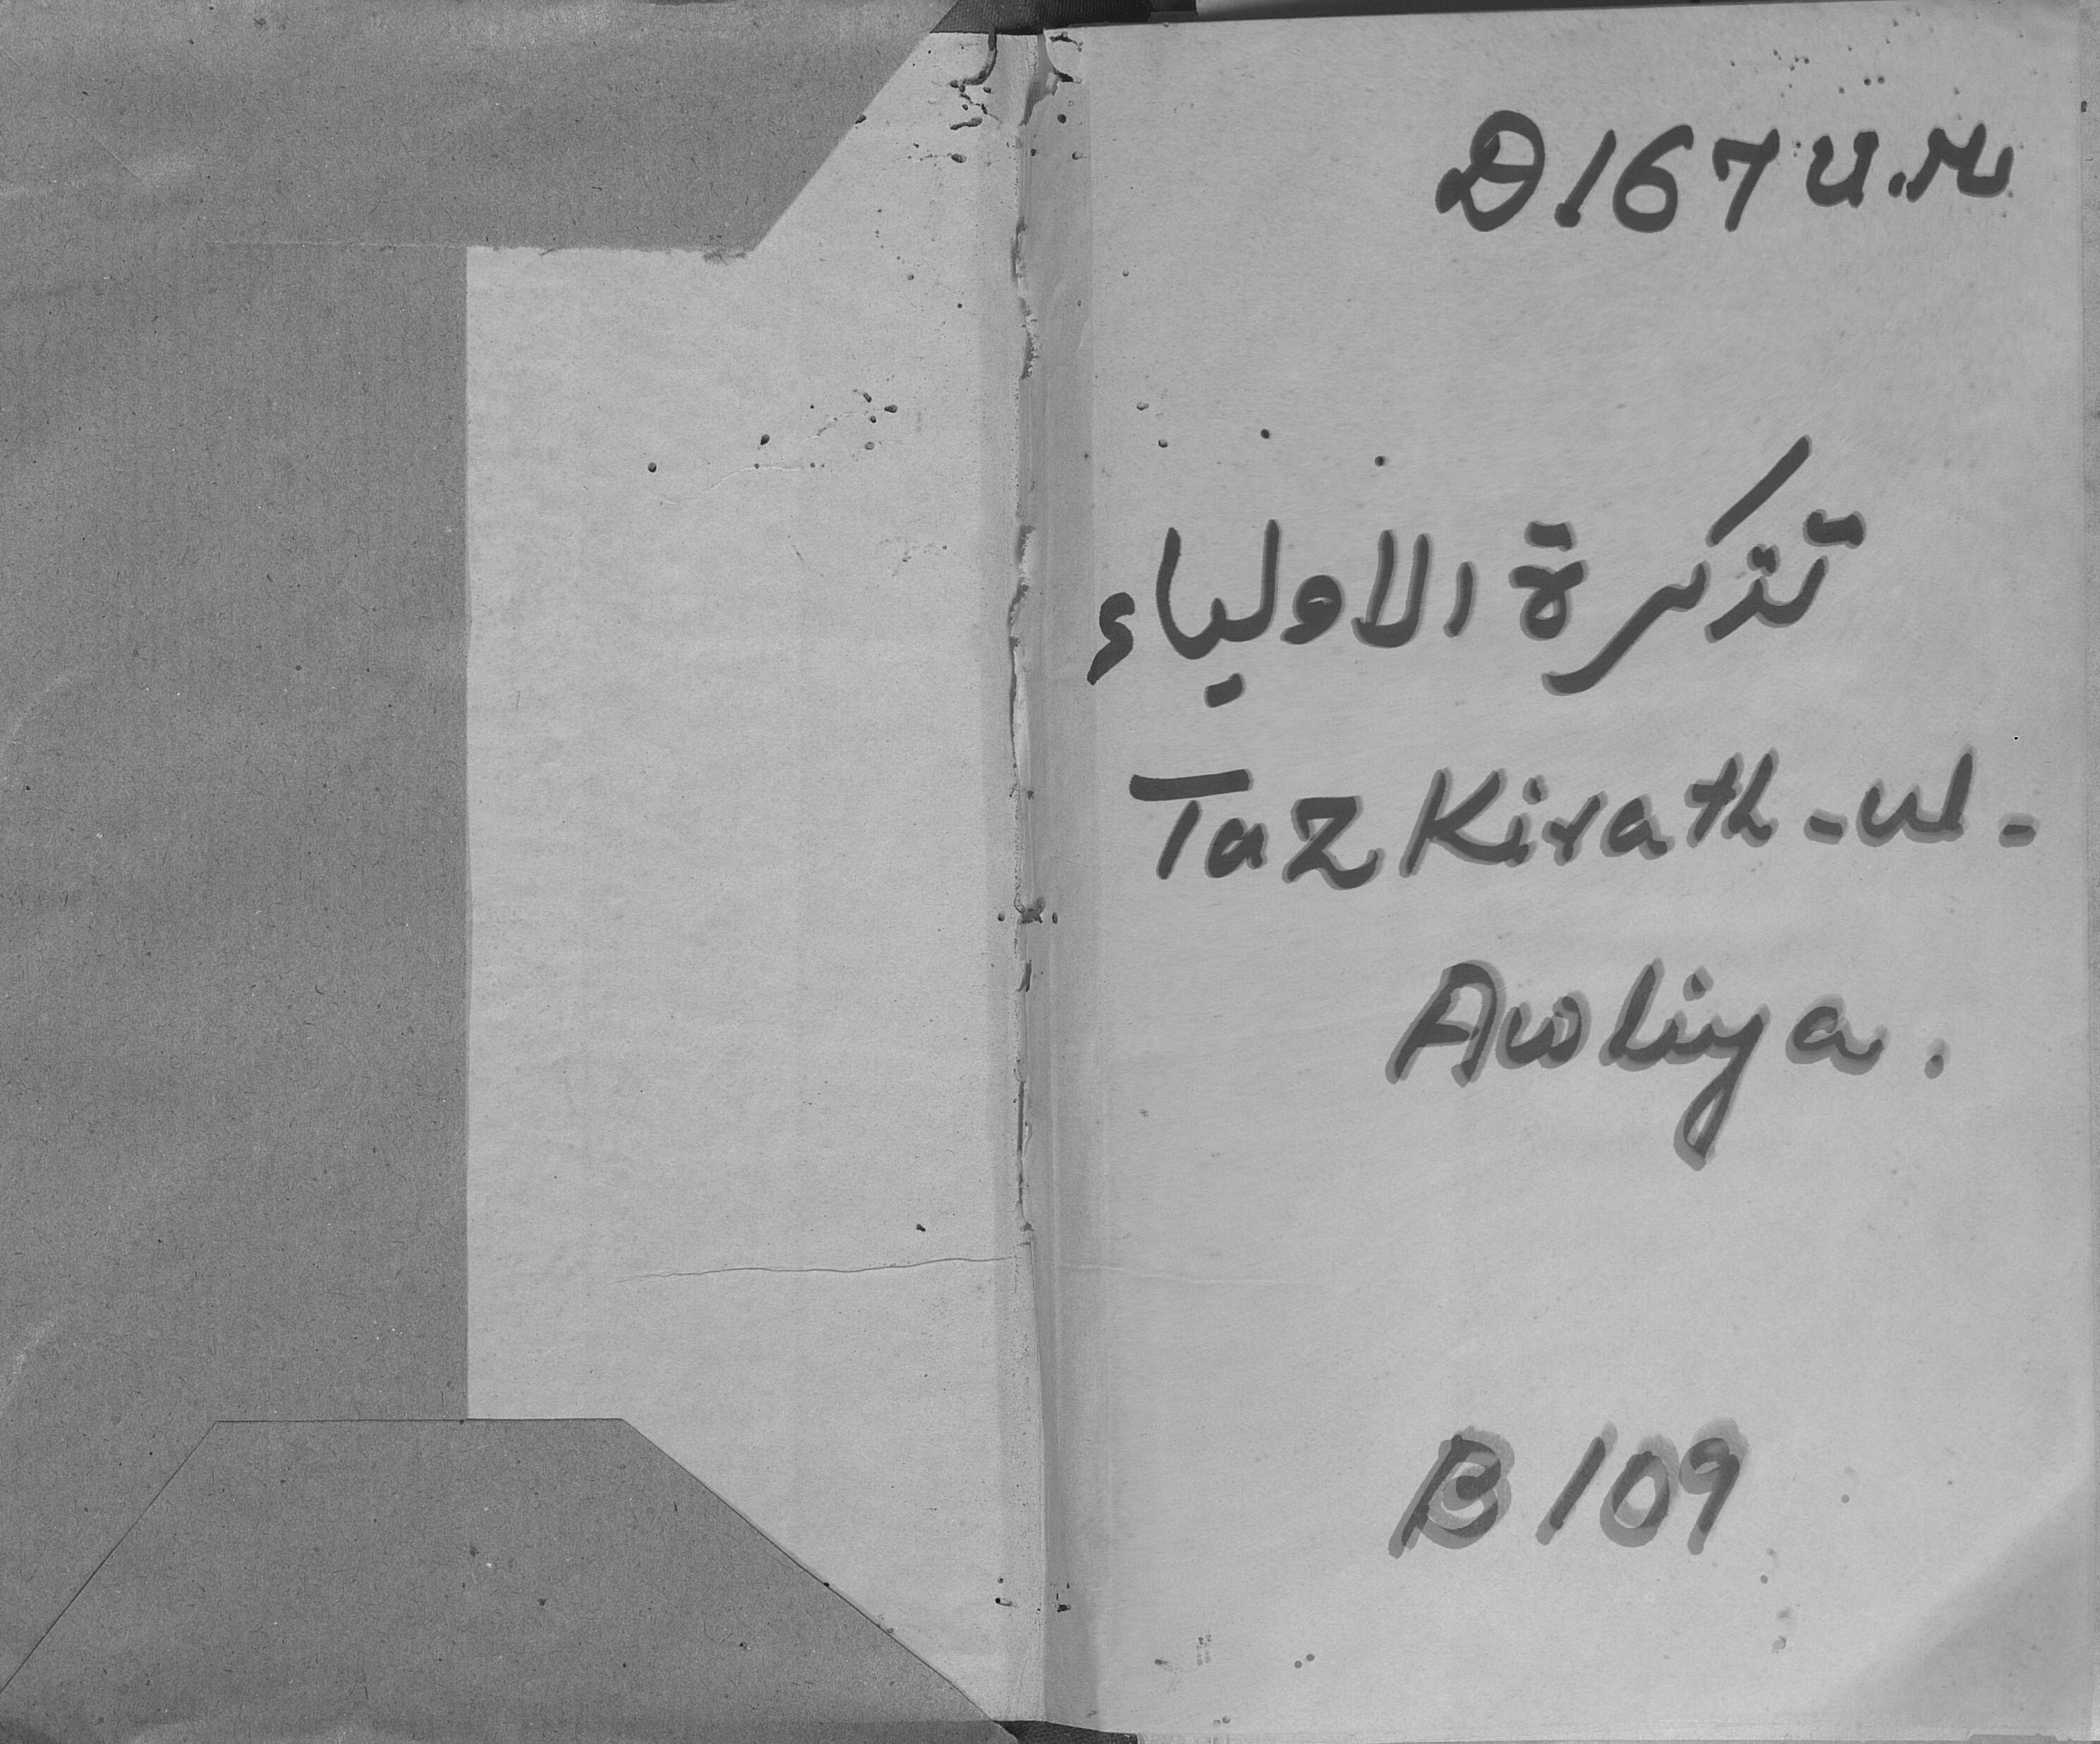 D167 U.M
تذكرة الاولياء
Tazkirath-ul-
Awliya.
B109